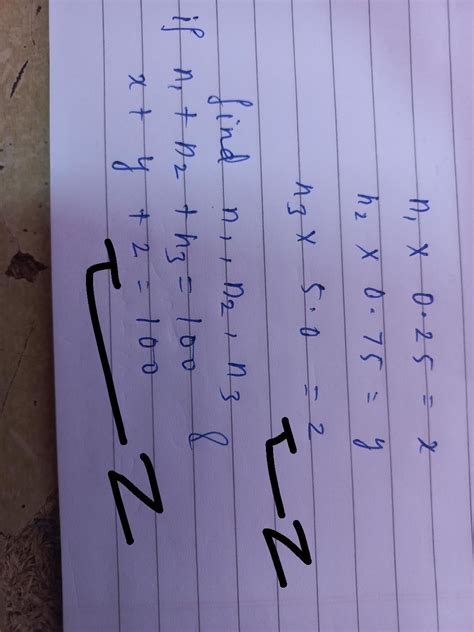 n₁ × 0.25 = x
n₂ × 0.75 = y
n₃ × 5.0 = 2
Z
find n₁, n₂, n₃
if n₁ + n₂ + n₃ = 100 &
x + y + 2 = 100
Z